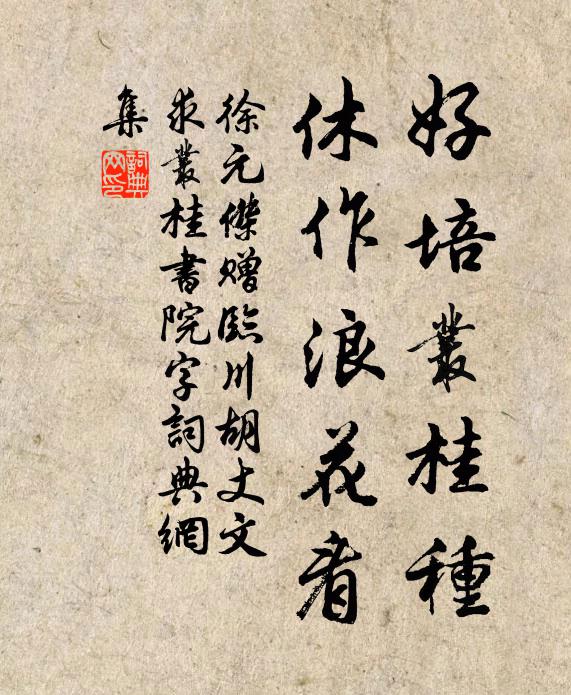 好培叢桂種
休作浪花看
徐元傑贈臨川胡丈文
求叢桂書院字詞典網
集
詞典網印